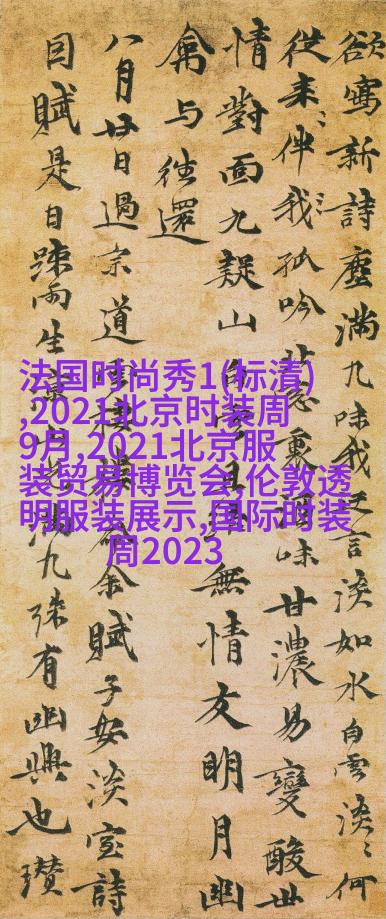 欲寫新詩塵滿九味我之言淡如水白雲淡ミ何
從來ミ伴我ミ孤吟裏酒味甘濃易變酸世
情對面九疑山無情友明月幽
禽与往還
八月廿日過宗道賦予安淡室詩
目賦是日疎雨生九殊有幽興也瓚
法国时尚秀1(标清)
,2021北京时装周
9月,2021北京服
装贸易博览会,伦敦透
明服装展示,国际时装
周2023